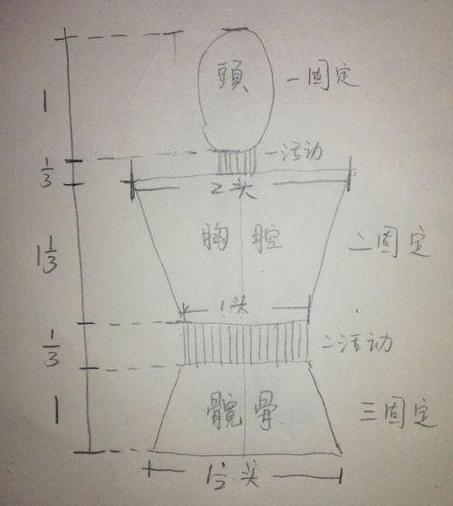 頭
一固定
1
一活动
1/3
2头
胸腔
二固定
1 1/3
1头
1/3
二活动
髋骨
三固定
1
1 1/2 头